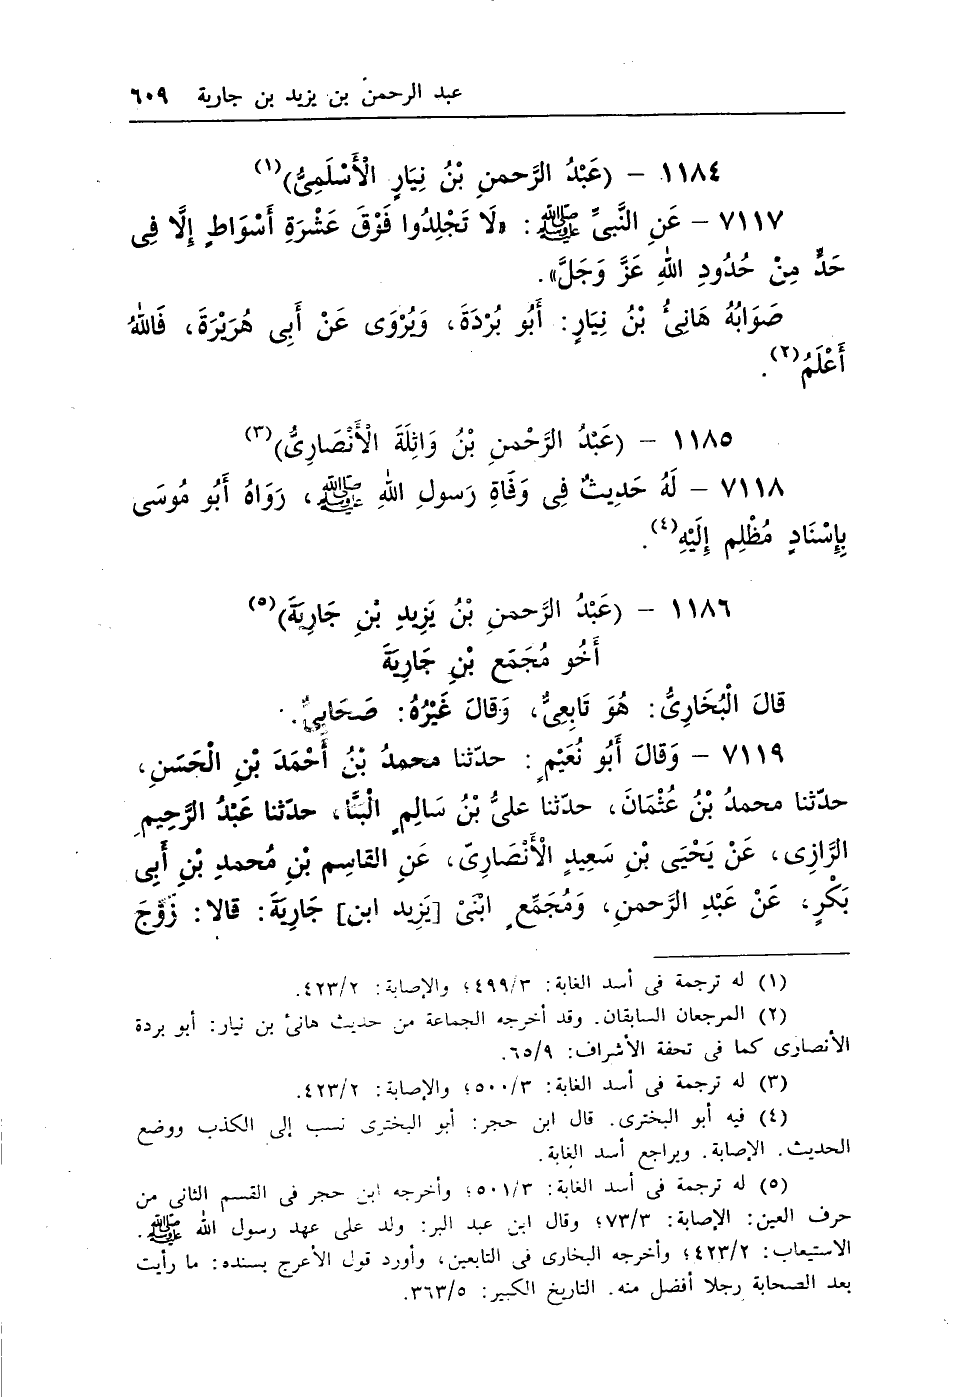 عبد الرحمن بن يزيد بن جارية ٦٠٩
١١٨٤ - (عَبْدُ الرَّحمنِ بْنُ نِيَارٍ الْأَسْلَمِىُّ)(١)
٧١١٧ - عَنِ النَّبِىِّ ﷺ : «لَا تَجْلِدُوا فَوْقَ عَشْرَةِ أَسْوَاطٍ إِلَّا فِى
حَدٍّ مِنْ حُدُودِ اللهِ عَزَّ وَجَلَّ».
صَوَابُهُ هَانِئُ بْنُ نِيَارٍ: أَبُو بُرْدَةَ، وَيُرْوَى عَنْ أَبِى هُرَيْرَةَ، فَاللهُ
أَعْلَمُ(٢).
١١٨٥ - (عَبْدُ الرَّحْمنِ بْنُ وَاثِلَةَ الْأَنْصَارِىُّ)(٣)
٧١١٨ - لَهُ حَدِيثٌ فِى وَفَاةِ رَسولِ اللهِ ﷺ، رَوَاهُ أَبُو مُوسَى
بِإِسْنَادٍ مُظْلِمٍ إِلَيْهِ(٤).
١١٨٦ - (عَبْدُ الرَّحمنِ بْنُ يَزِيدِ بْنِ جَارِيَةَ)(٥)
أَخُو مُجَمَعِ بْنِ جَارِيَةَ
قَالَ الْبُخَارِىُّ: هُوَ تَابِعِىٌّ، وَقَالَ غَيْرُهُ: صَحَابِىٌّ.
٧١١٩ - وَقَالَ أَبُو نُعَيْمٍ : حدّثنا محمدُ بْنُ أَحْمَدَ بْنِ الْحَسَنِ،
حدّثنا محمدُ بْنُ عُثْمَانَ، حدّثنا علىُّ بْنُ سَالِمٍ الْبَنَّا، حدّثنا عَبْدُ الرَّحِيمِ
الرَّازِى، عَنْ يَحْيَى بْنِ سَعِيدٍ الْأَنْصَارِىّ، عَنِ القَاسِمِ بْنِ مُحمدِ بْنِ أَبِى
بَكْرٍ، عَنْ عَبْدِ الرَّحمنِ، وَمُجَمِّعٍ ابْنَىْ [يَزِيد ابن] جَارِيَةَ: قالا: زَوَّجَ
(١) له ترجمة فى أسد الغابة: ٤٩٩/٣؛ والإصابة: ٤٢٣/٢.
(٢) المرجعان السابقان. وقد أخرجه الجماعة من حديث هانئ بن نيار: أبو بردة
الأنصارى كما فى تحفة الأشراف: ٦٥/٩.
(٣) له ترجمة فى أسد الغابة: ٥٠٠/٣؛ والإصابة: ٤٢٣/٢.
(٤) فيه أبو البخترى. قال ابن حجر: أبو البخترى نسب إلى الكذب ووضع
الحديث. الإصابة. ويراجع أسد الغابة.
(٥) له ترجمة فى أسد الغابة: ٥٠١/٣؛ وأخرجه ابن حجر فى القسم الثانى من
حرف العين: الإصابة: ٧٣/٣؛ وقال ابن عبد البر: ولد على عهد رسول الله ﷺ.
الاستيعاب: ٤٢٣/٢؛ وأخرجه البخارى فى التابعين، وأورد قول الأعرج بسنده: ما رأيت
بعد الصحابة رجلا أفضل منه. التاريخ الكبير: ٣٦٣/٥.